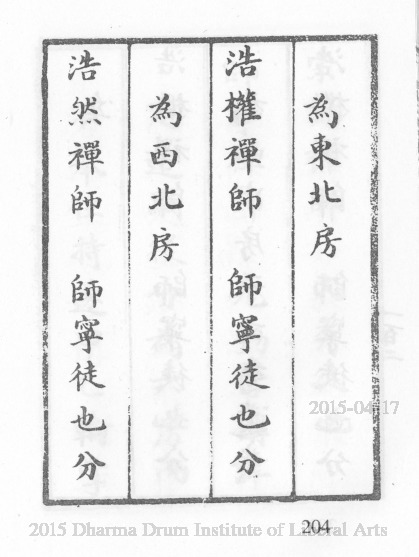 為東北房
浩權禪師 師寧徒也分
為西北房
浩然禪師 師寧徒也分
2015-04-17
204
2015 Dharma Drum Institute of Liberal Arts